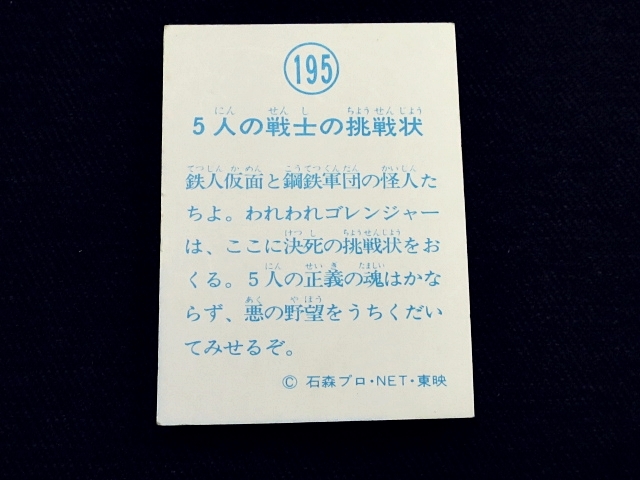 195
5人の戦士の挑戦状
鉄人仮面と鋼鉄軍団の怪人た
ちよ。われわれゴレンジャー
は、ここに決死の挑戦状をお
くる。5人の正義の魂はかな
らず、悪の野望をうちくだい
てみせるぞ。
© 石森プロ・NET・東映